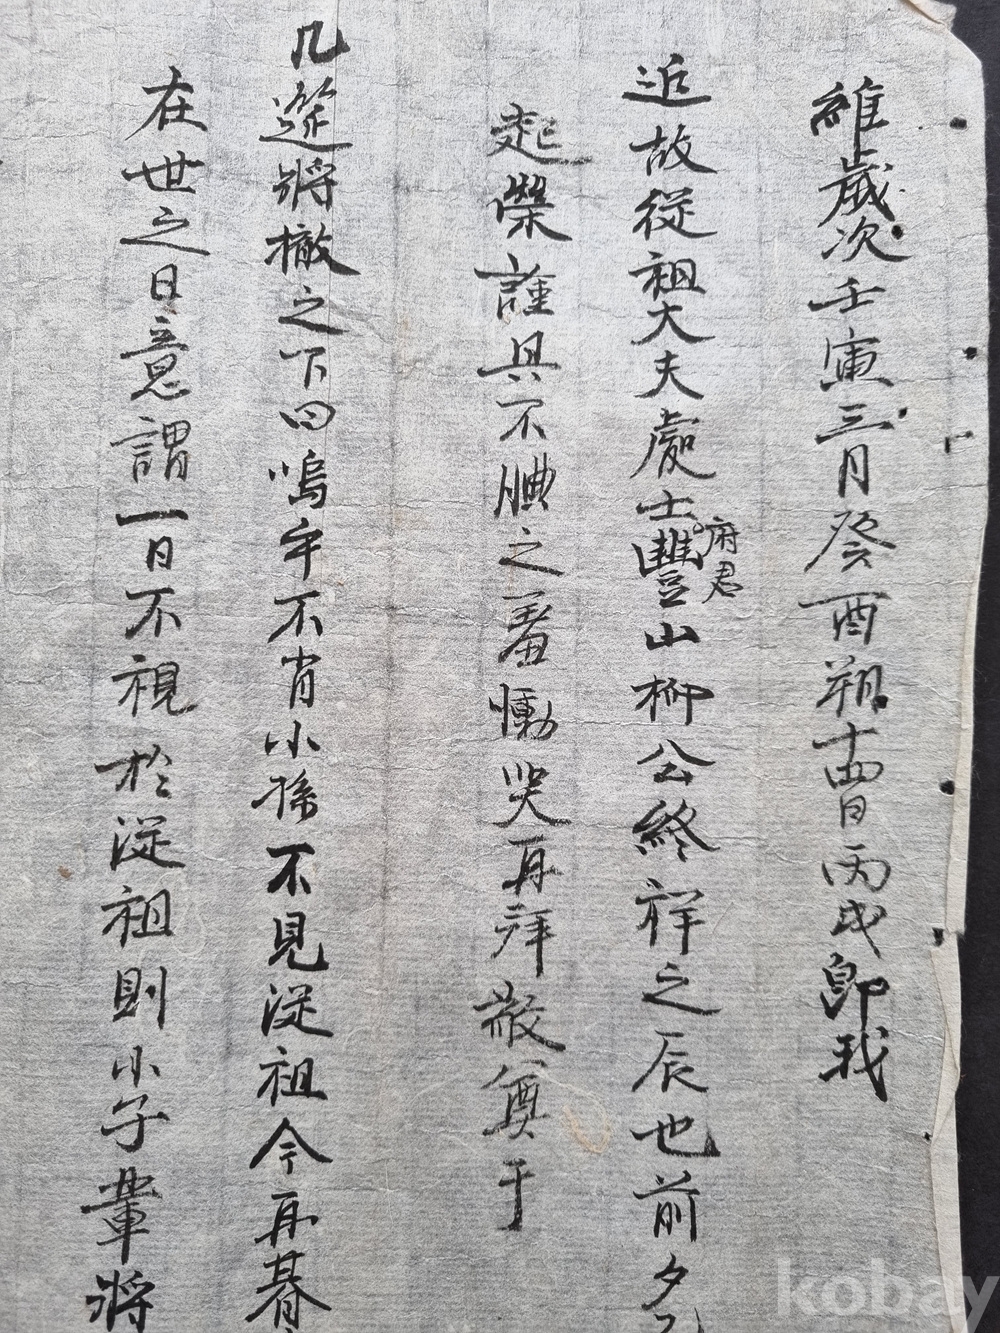 維歲次壬寅三月癸酉朔十四日丙戌即我
近故從祖大夫處士府君豐山柳公終祥之辰也前夕乙
起榮謹具不腆之羞慟哭再拜敬奠于
几筵將撤之下曰嗚乎不肖小孫不見從祖今再朞
在世之日意謂一日不視於從祖則小子輩將
kobay